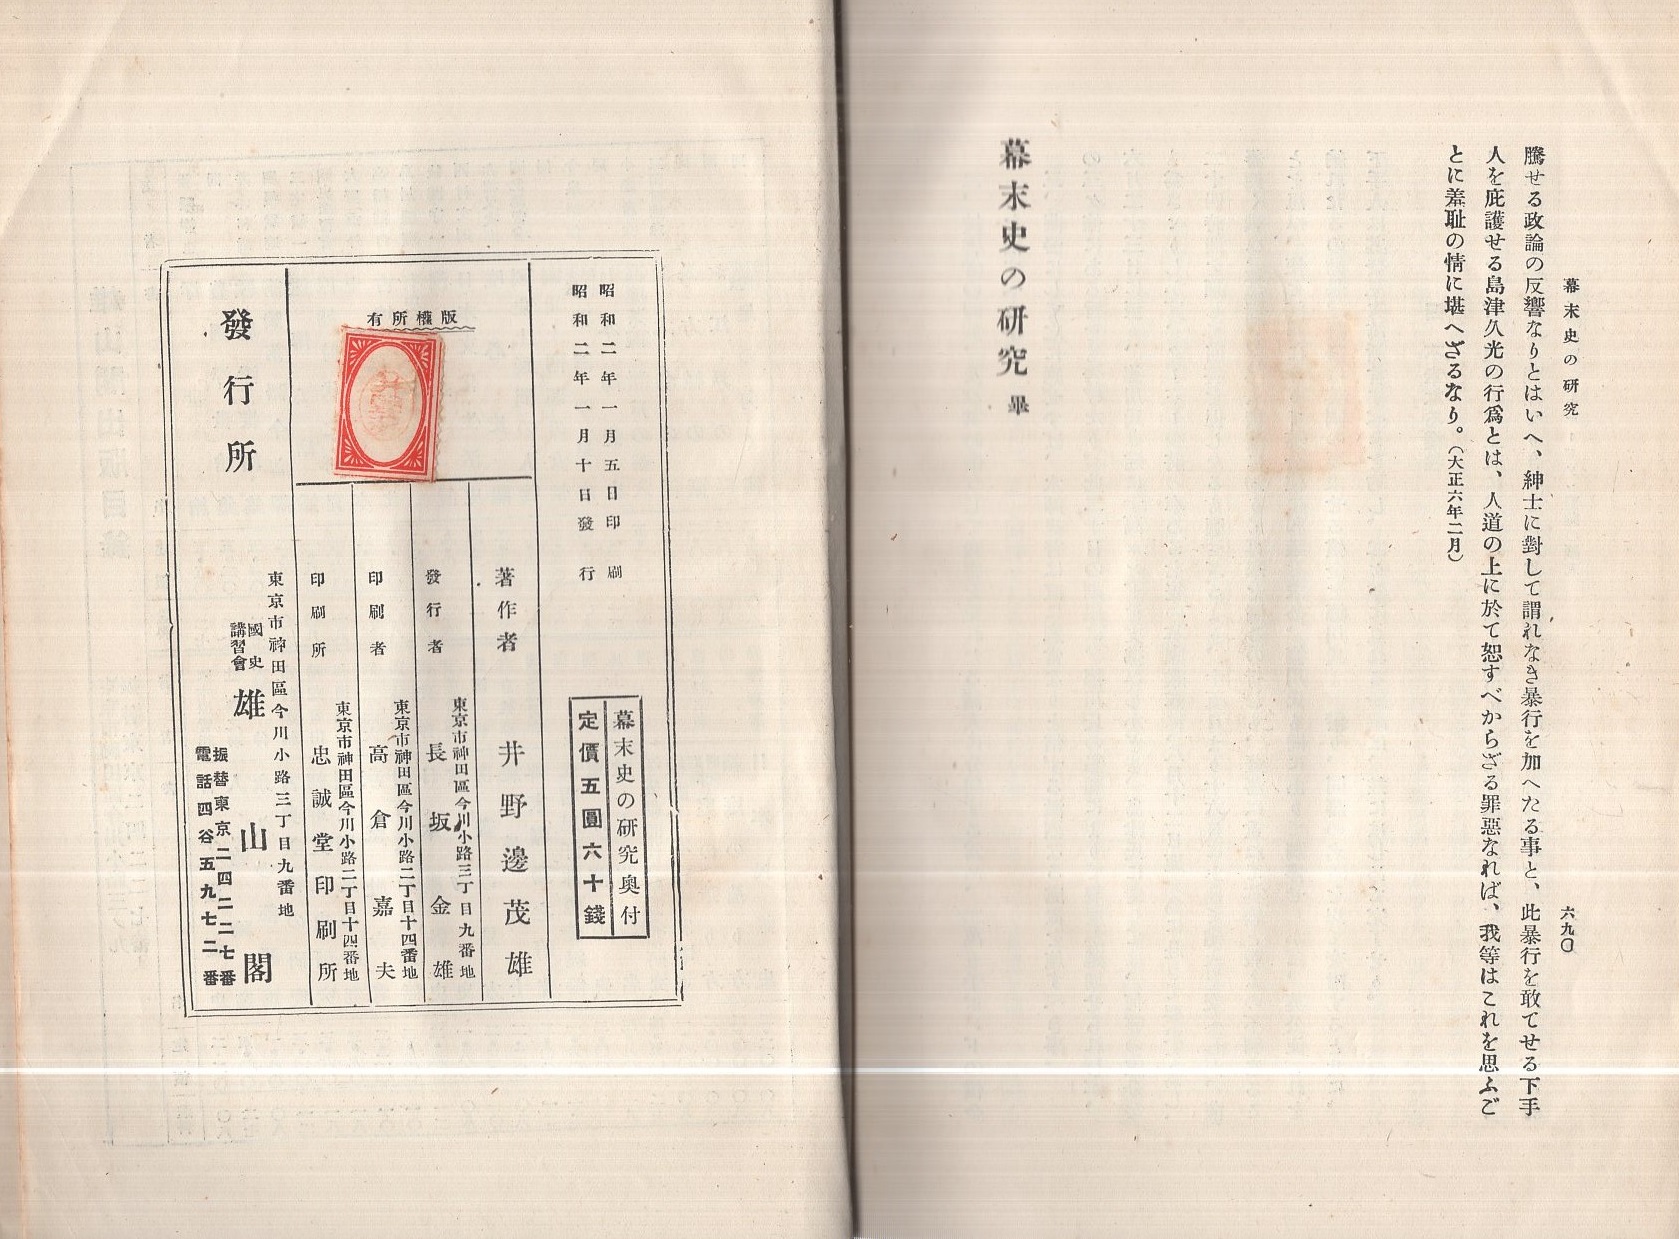 幕末史の研究
六九〇
騰せる政論の反響なりとはいへ、紳士に對して謂れなき暴行を加へたる事と、此暴行を敢てせる下手
人を庇護せる島津久光の行爲とは、人道の上に於て恕すべからざる罪惡なれば、我等はこれを思ふご
とに羞耻の情に堪へざるなり。（大正六年二月）
幕末史の研究 畢
昭和二年一月五日印刷
昭和二年一月十日發行
幕末史の研究奥付
定價五圓六十錢
版權所有
著作者 井野邊茂雄
東京市神田區今川小路三丁目九番地
發行者 長坂金雄
東京市神田區今川小路二丁目十四番地
印刷者 高倉嘉夫
東京市神田區今川小路二丁目十四番地
印刷所 忠誠堂印刷所
發行所
東京市神田區今川小路三丁目九番地
國史講習會 雄山閣
振替東京二四二二七番
電話四谷五九七二番